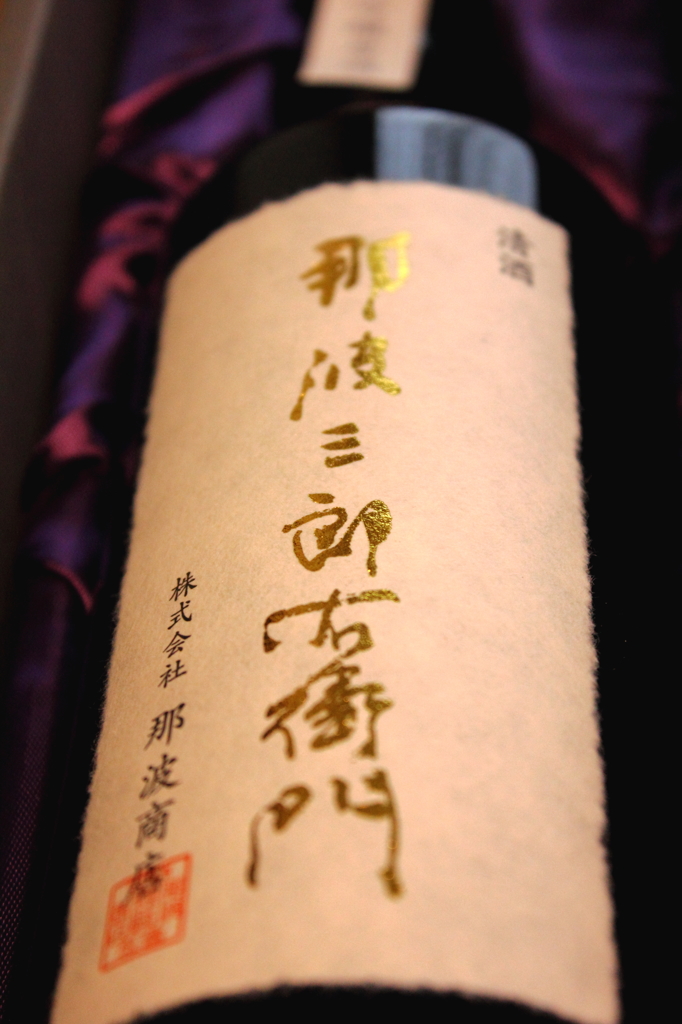 清酒
那波三郎右衛門
株式会社 那波商店